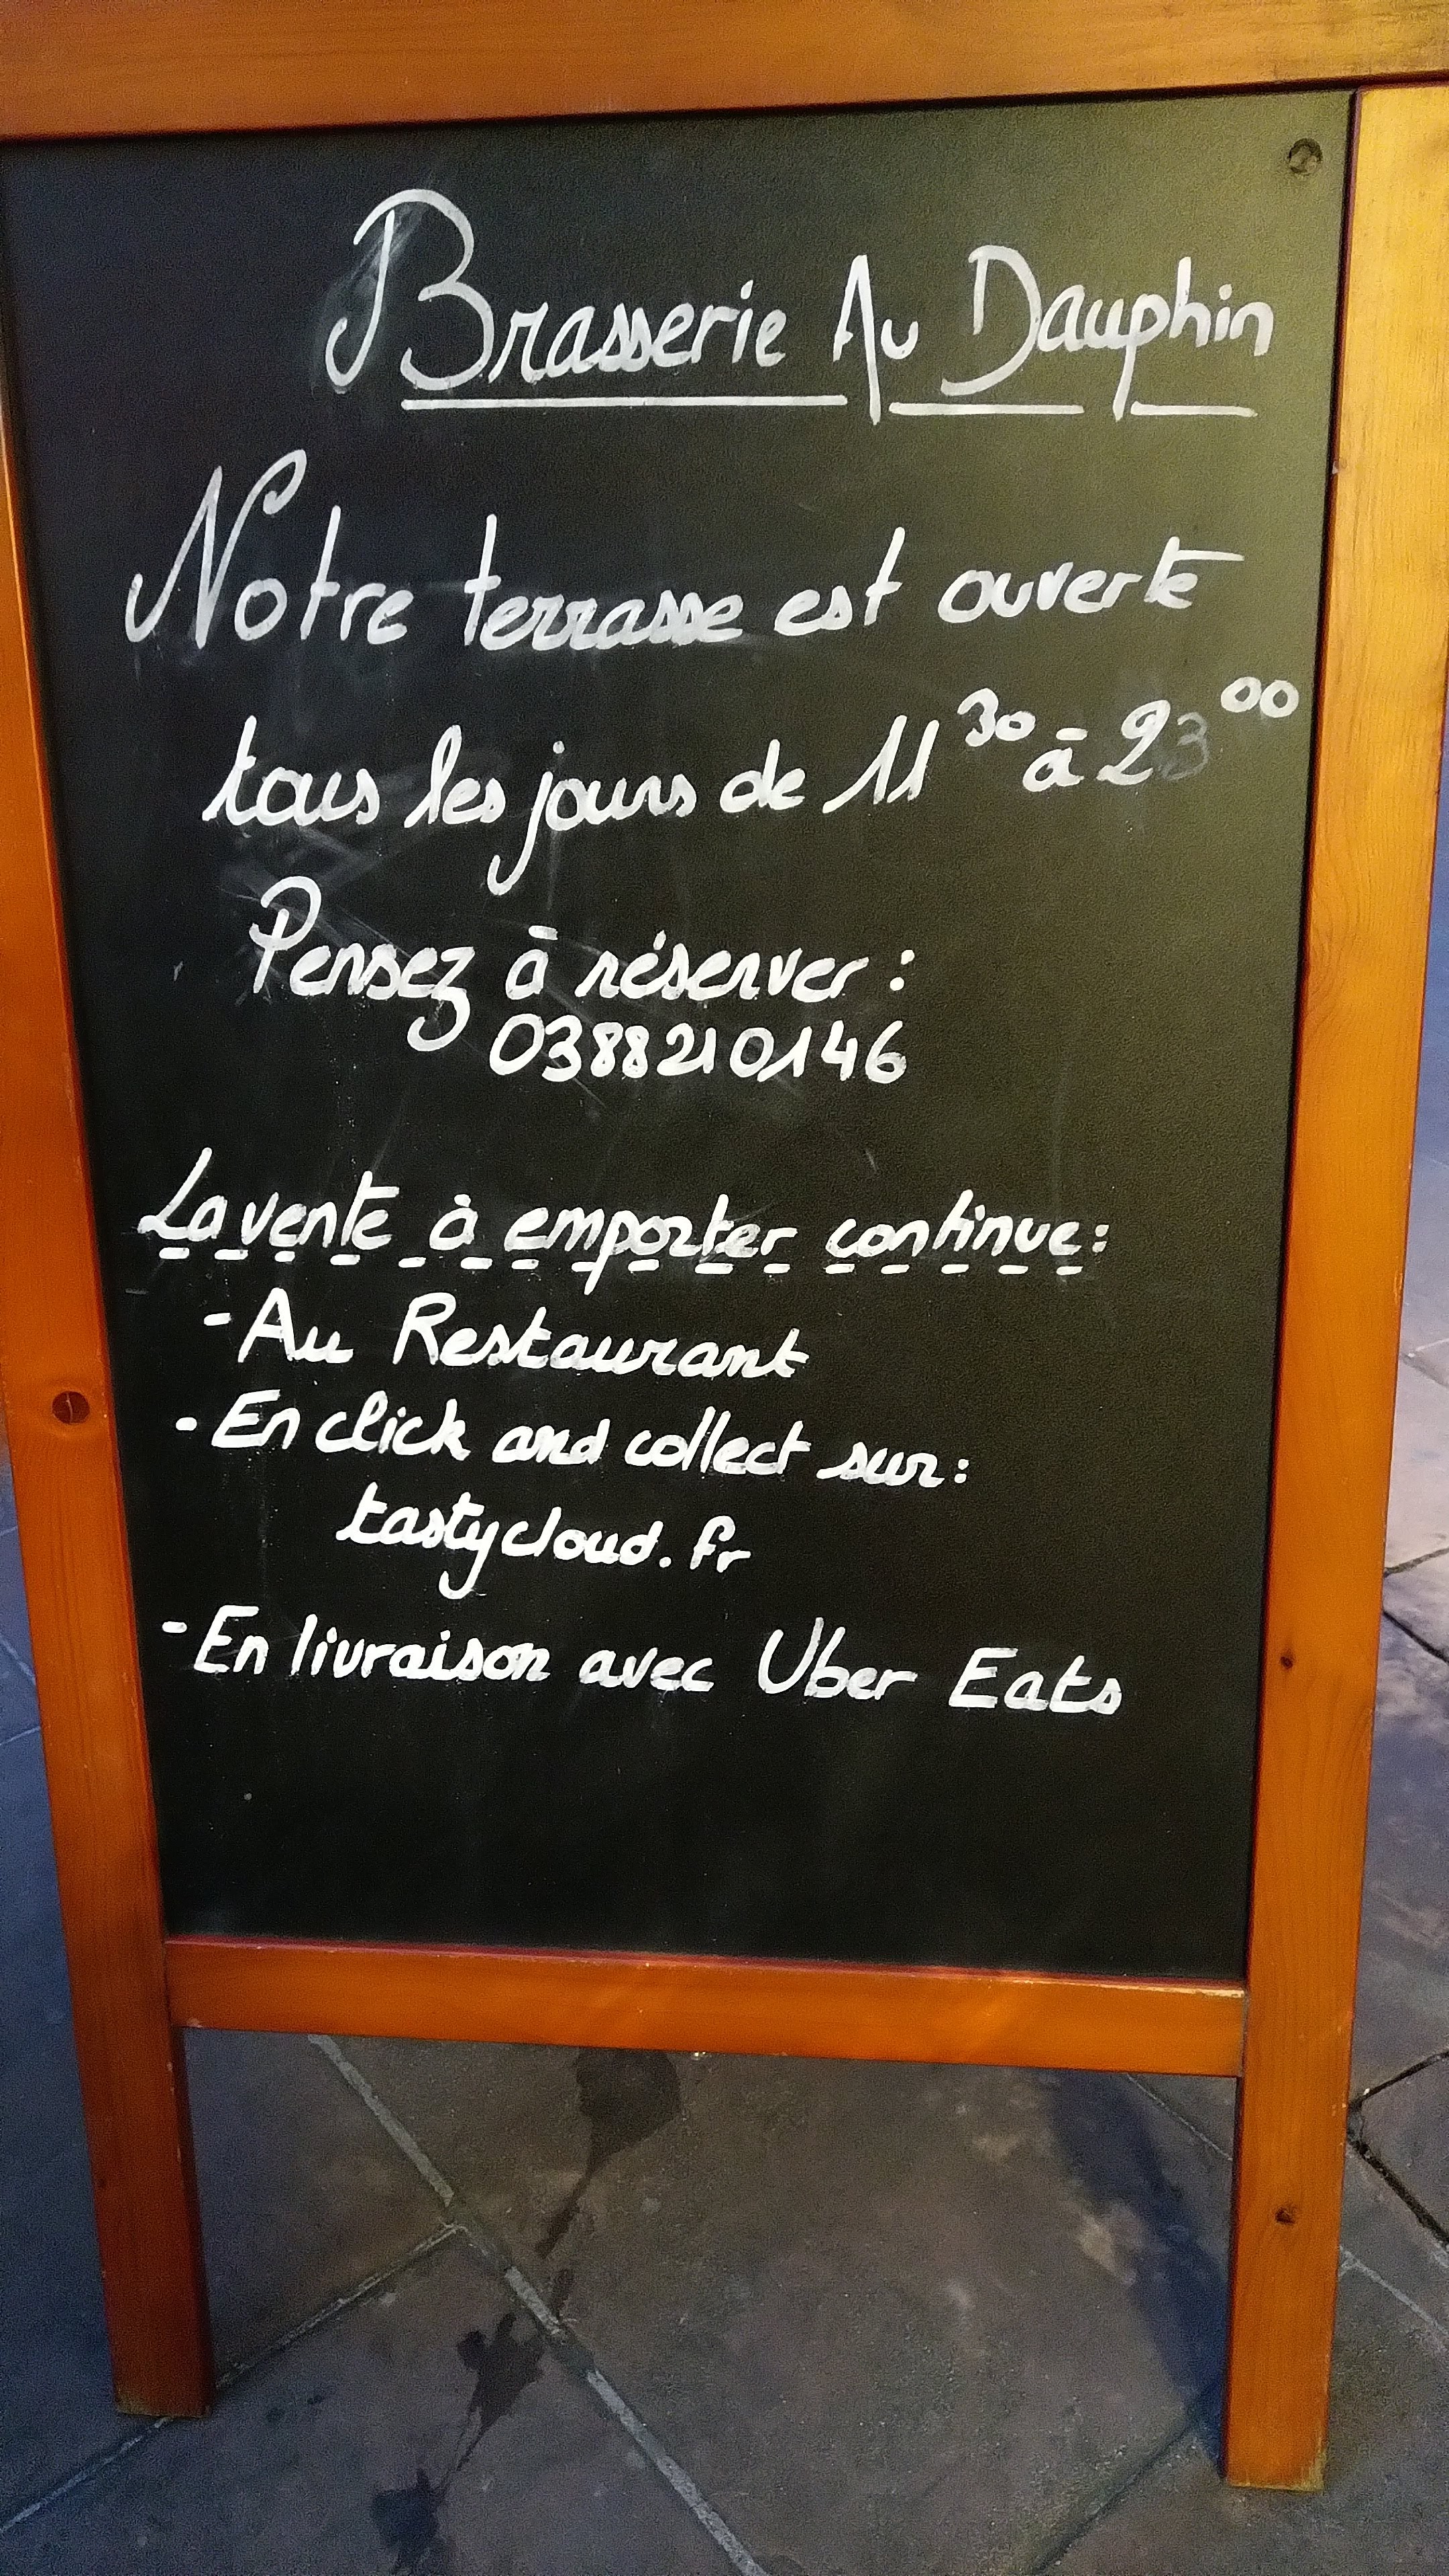 Brasserie Au Dauphin
Notre terrasse est ouverte
tous les jours de 11 30 à 23 00
Pensez à réserver :
0388210146
La vente à emporter continue :
- Au Restaurant
- En click and collect sur :
tastycloud.fr
- En livraison avec Uber Eats